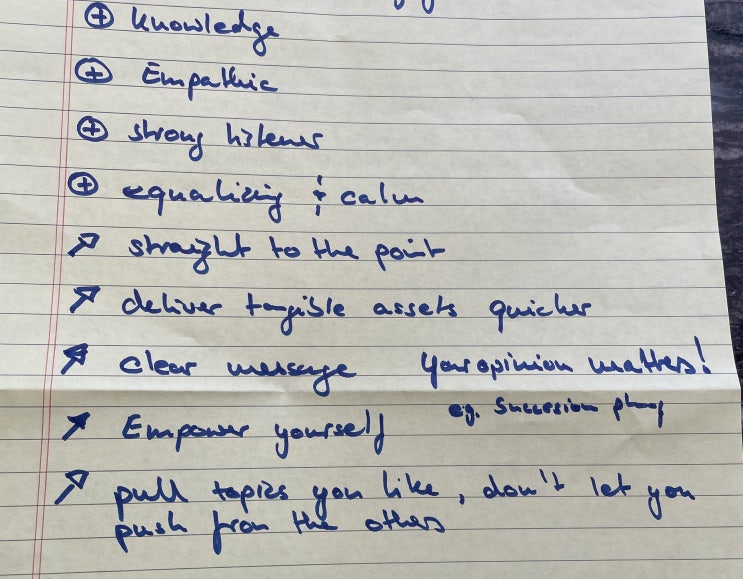 ⊕ knowledge
⊕ Empathic
⊕ strong listener
⊕ equalizing & calm
↗ straight to the point
↗ deliver tangible assets quicker
↗ clear message Your opinion matters!
eg. Succession
↗ Empower yourself
↗ pull topics you like, don't let you
push from the others